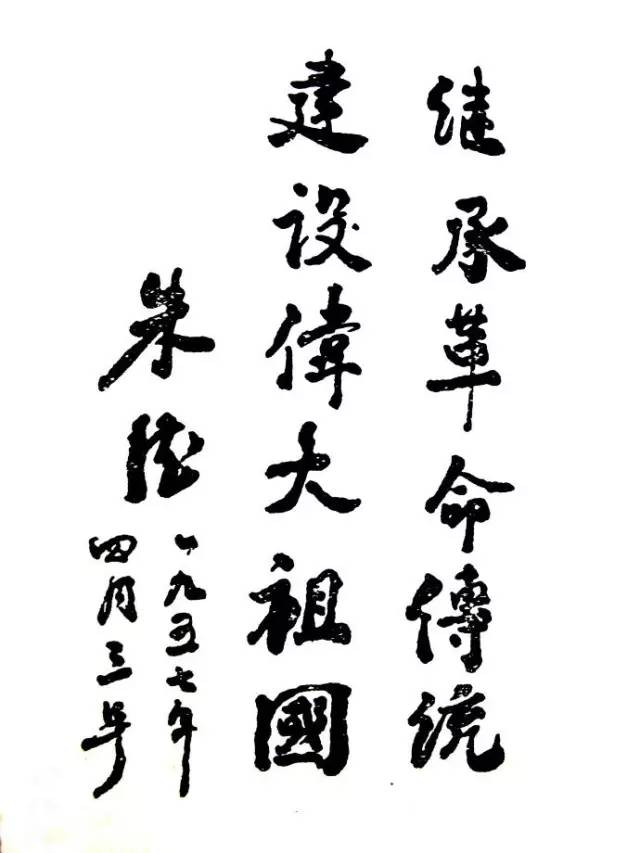 继承革命傳统
建设偉大祖國
朱德
一九五七年
四月三号